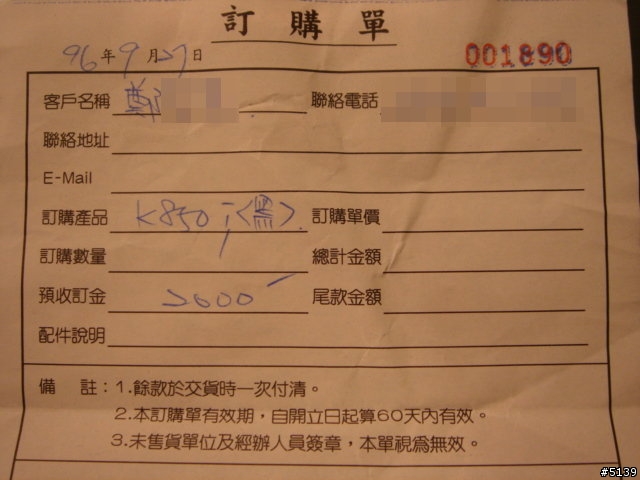 訂購單
96年9月27日 001890
客戶名稱 鄭 聯絡電話
聯絡地址
E-Mail
訂購產品 K850i<黑> 訂購單價
訂購數量 1 總計金額
預收訂金 2000 尾款金額
配件說明
備 註：1.餘款於交貨時一次付清。
2.本訂購單有效期，自開立日起算60天內有效。
3.未售貨單位及經辦人員簽章，本單視為無效。
#5139